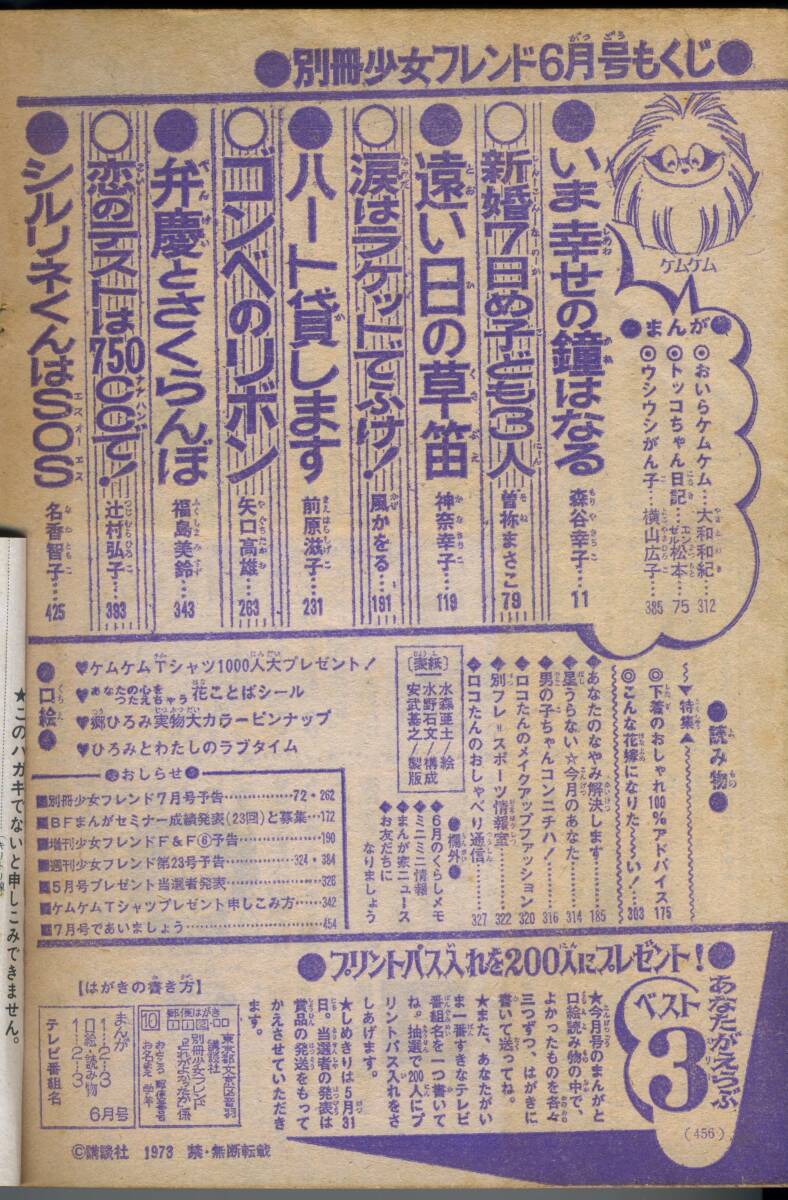 ●別冊少女フレンド6月号もくじ●
ケムケム
●まんが●
◎おいらケムケム…大和和紀…312
◎トッコちゃん日記…ゼル松本…75
◎ウシウシがん子…横山広子…385
●いま幸せの鐘はなる 森谷幸子…11
○新婚7日め子ども3人 曽祢まさこ 79
●遠い日の草笛 神奈幸子…119
○涙はラケットでふけ! 風かをる…191
●ハート貸します 前原滋子…231
○ゴンベのリボン 矢口高雄…263
●弁慶とさくらんぼ 福島美鈴…343
○恋のテストは750CCで! 辻村弘子…393
●シルリネくんはSOS 名香智子…425
●読み物●
▼特集▲
◎下着のおしゃれ100%アドバイス 175
◎こんな花嫁になりた〜〜い!…303
■あなたのなやみ解決します…185
■星うらない☆今月のあなた…314
■男の子ちゃんコンニチハ!…316
■ロコたんのメイクアップファッション 320
■別フレ=スポーツ情報室…322
■ロコたんのおしゃべり通信…327
〔表紙〕
水森亜土/絵
水野石文/構成
安武基之/製版
●欄外●
◆6月のくらしメモ
◆ミニミニ情報
◆まんが家ニュース
◆お友だちに
なりましょう
●口絵●
♥ケムケムTシャツ1000人大プレゼント!
♥あなたの心をつたえちゃう 花ことばシール
♥郷ひろみ実物大カラーピンナップ
♥ひろみとわたしのラブタイム
●おしらせ●
■別冊少女フレンド7月号予告……72・262
■BFまんがセミナー成績発表(23回)と募集…172
■増刊少女フレンドF&F⑥予告……190
■週刊少女フレンド第23号予告……324・384
■5月号プレゼント当選者発表……326
■ケムケムTシャツプレゼント申しこみ方……342
■7月号であいましょう……454
●あなたがえらぶ
ベスト3
●プリントパス入れを200人にプレゼント!
★今月号のまんがと
口絵読み物の中で、
よかったものを各々
三つずつ、はがきに
書いて送ってね。
★また、あなたがい
ま一番すきなテレビ
番組名を一つ書いて
ね。抽選で200人にプ
リントパス入れをさ
しあげます。
★しめきりは5月31
日。当選者の発表は
賞品の発送をもって
かえさせていただき
ます。
【はがきの書き方】
郵便はがき
10
東京都文京区音羽
講談社
別冊少女フレンド
どれがよかったか係
おところ 郵便番号
お名まえ 学年
まんが
1…2…3
口絵・読み物
1…2…3
テレビ番組名
6月号
(456)
©講談社 1973 禁・無断転載
★このハガキでないと申しこみできません。